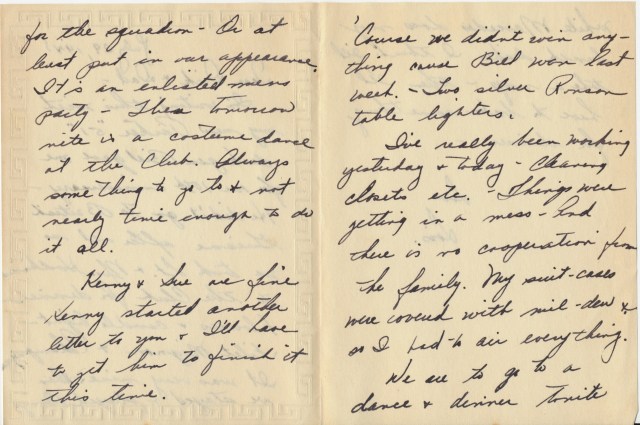 for the squadron - Or at
least put in our appearance.
It's an enlisted mens
party - Then tomorrow
nite is a costume dance
at the Club. Always
something to go to & not
nearly time enough to do
it all.
Kenny & Sue are fine
Kenny started another
letter to you & I'll have
to get him to finish it
this time.
'Course we didn't win any-
thing cause Bill won last
week. - Two silver Ronson
table lighters.
I've really been working
yesterday & today - cleaning
closets etc. - Things were
getting in a mess - And
there is no cooperation from
the family. My suit-cases
were covered with mil-dew &
so I had to air everything.
We are to go to a
dance & dinner tonite